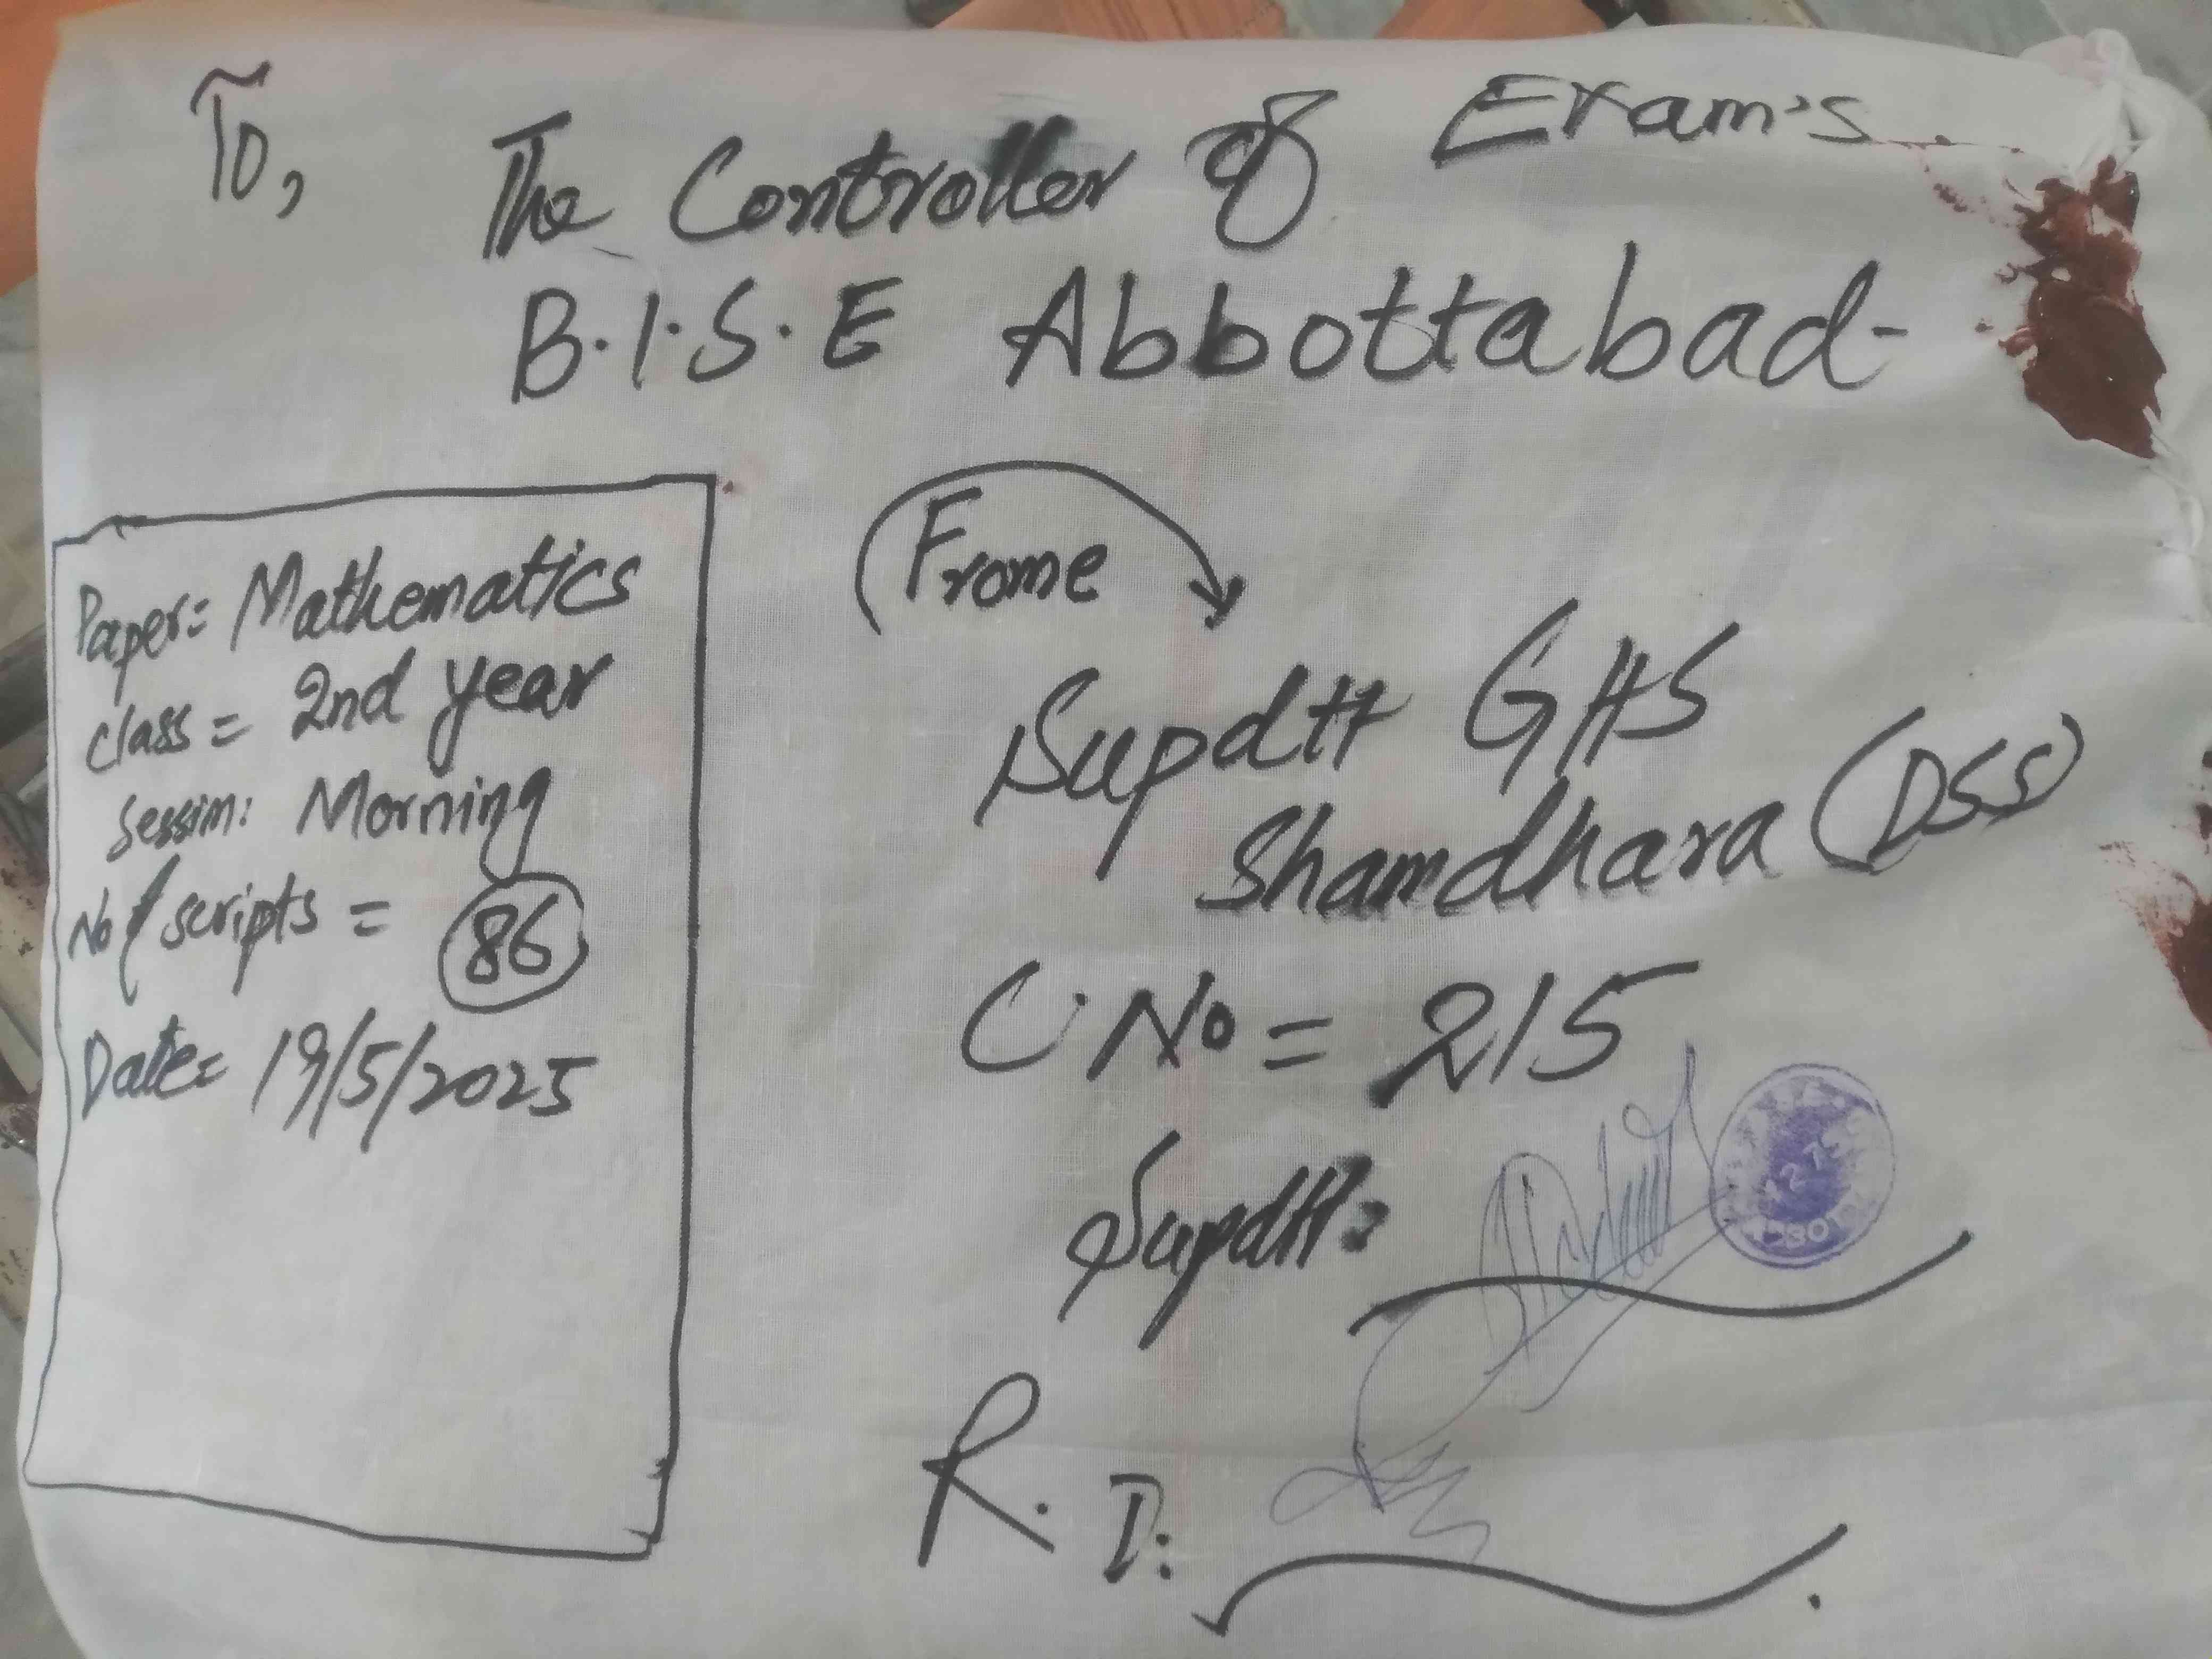 To,
The Controller of Exam's.
B.I.S.E Abbottabad-
Paper= Mathematics
class = 2nd year
Session: Morning
No of scripts = 86
Date= 19/5/2025
Frome
Supdtt GHS
Shamdhara (DSS)
C.No = 215
Supdtt:
R. I: